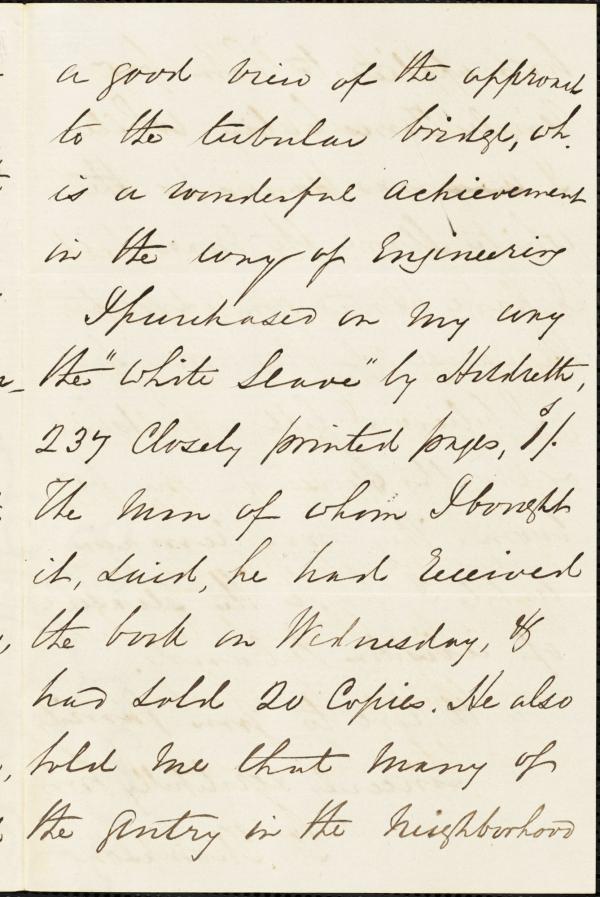 a good view of the approach
to the tubular bridge, wh.
is a wonderful achievement
in the way of Engineering
I purchased on my way
the "White Slave" by Hildreth,
237 Closely printed pages, 1s/.
The man of whom I bought
it, said, he had received
the book on Wednesday, &
had sold 20 Copies. He also
told me that many of
the gentry in the neighborhood